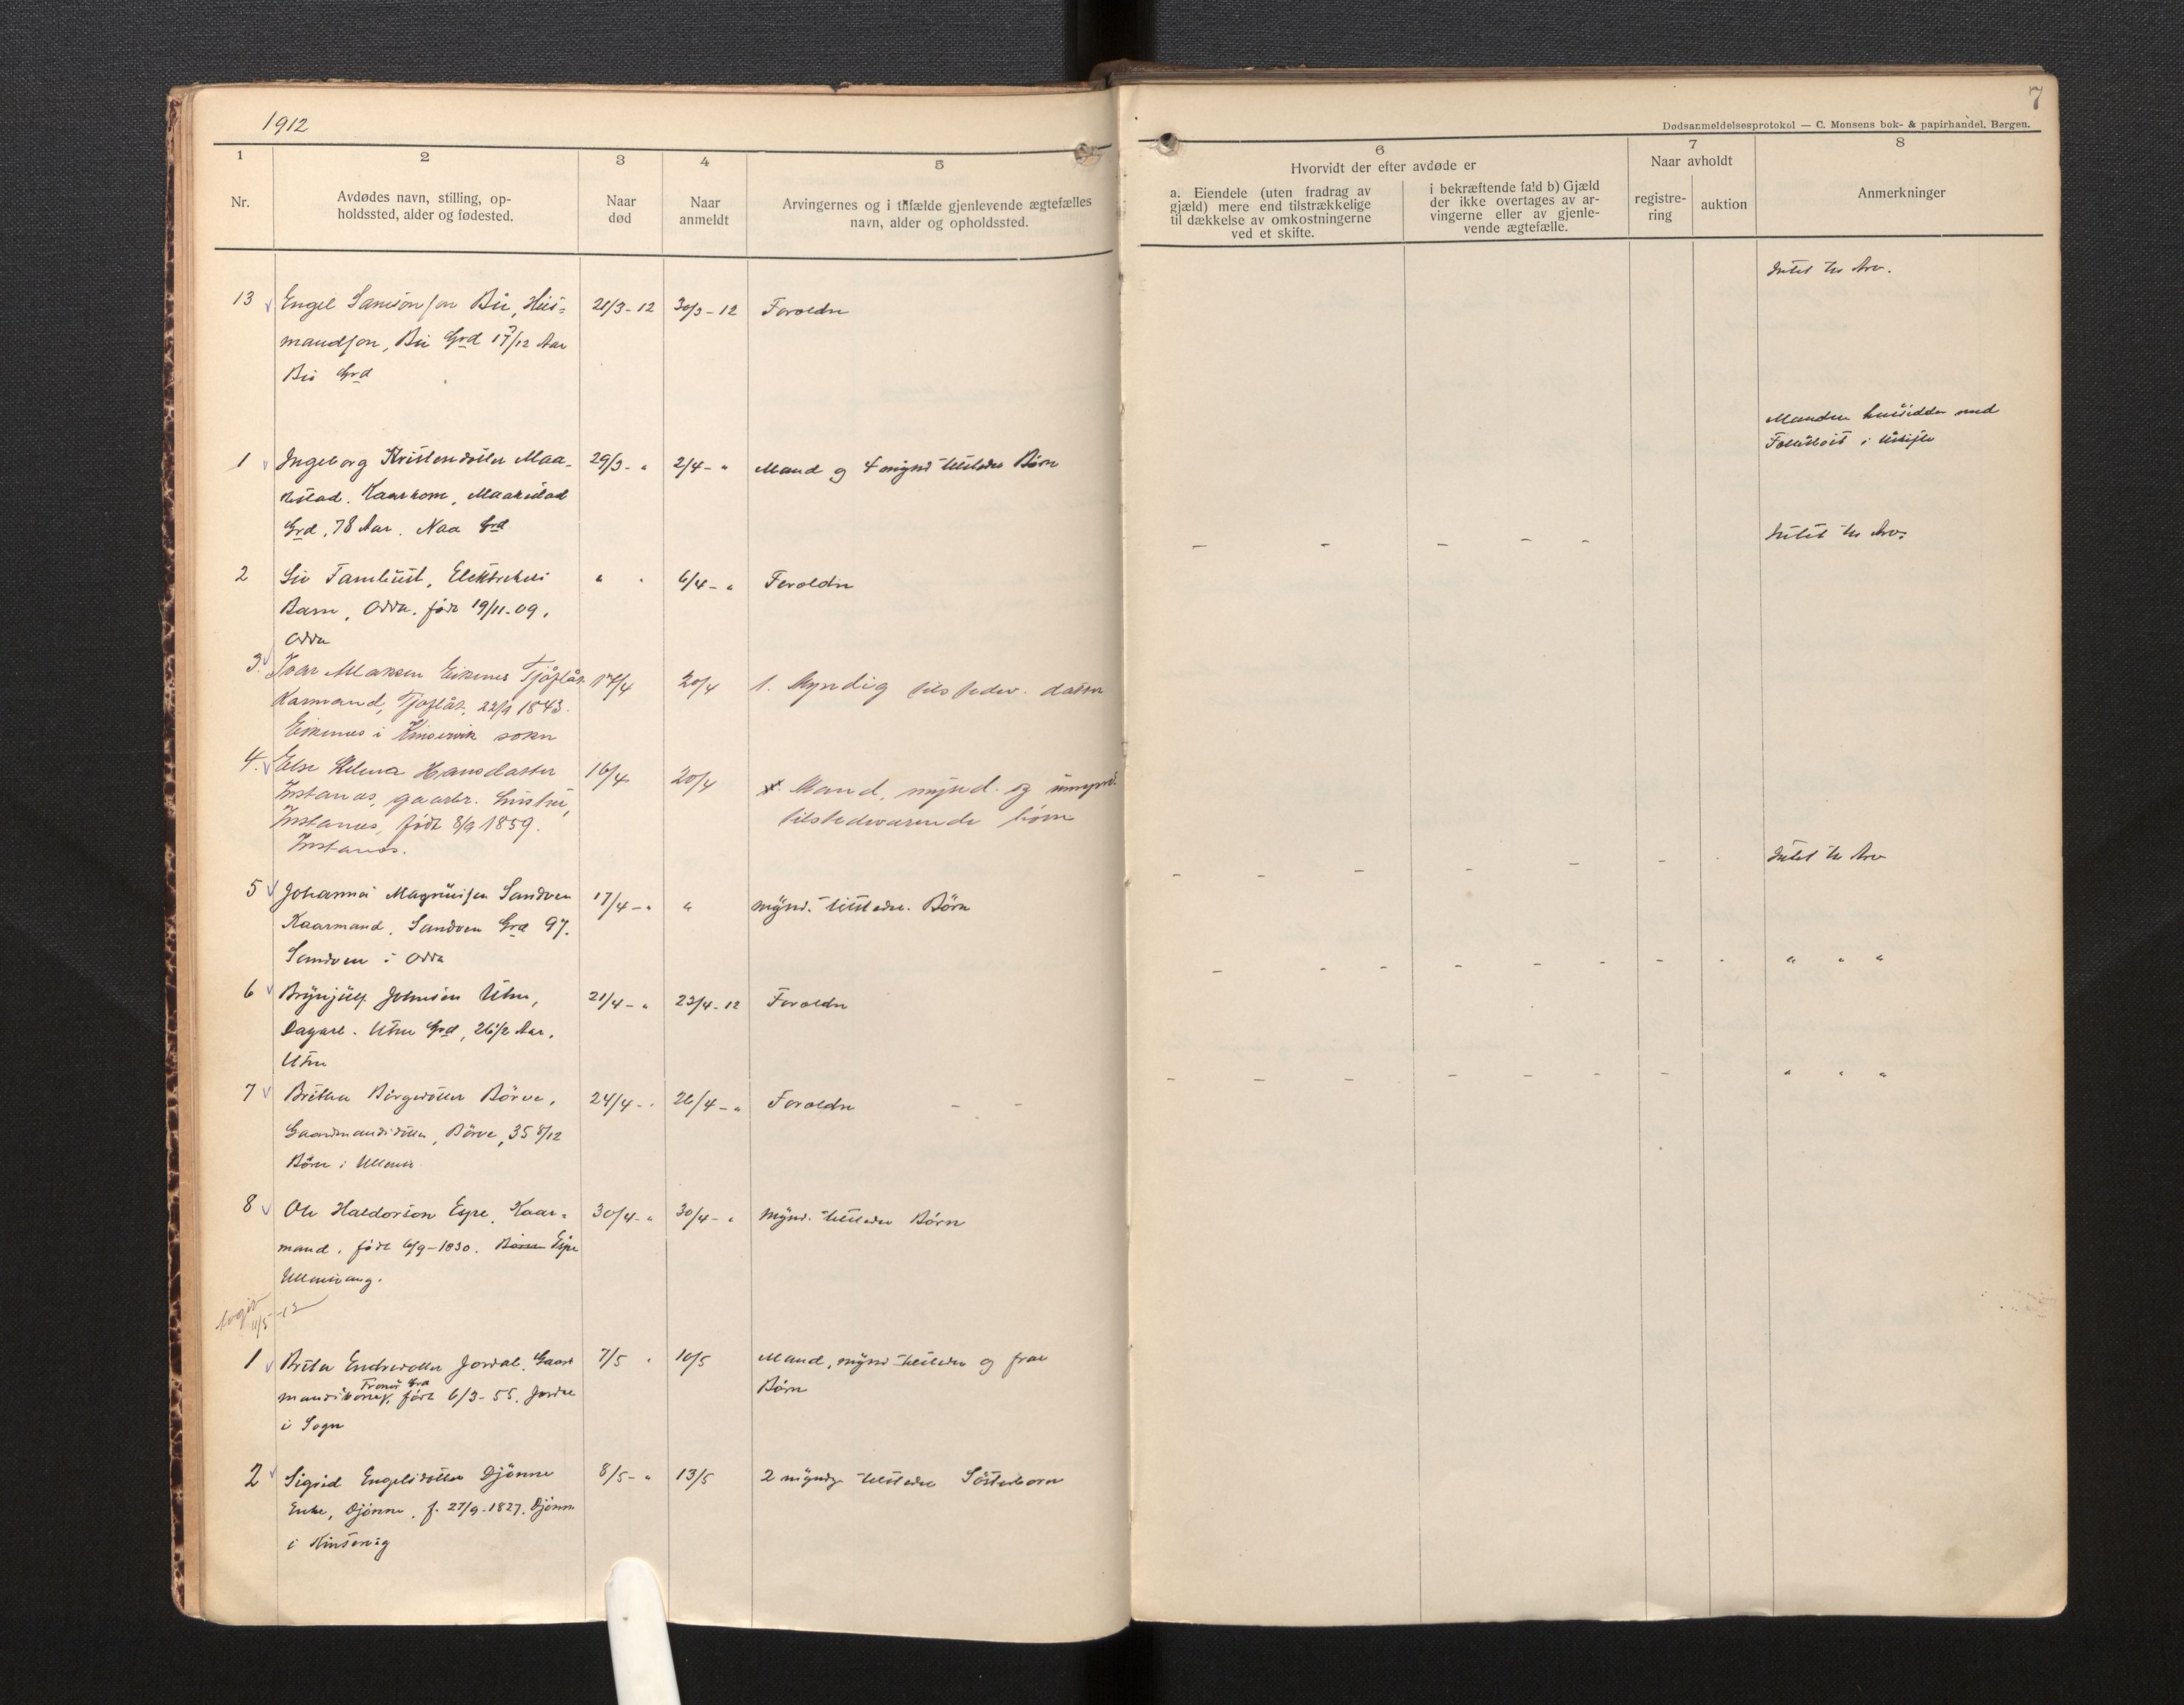 1912
7
Dødsanmeldelsesprotokol — C. Monsens bok- & papirhandel, Bergen.
1
Nr.
2
Avdødes navn, stilling, op-
holdssted, alder og fødested.
3
Naar
død
4
Naar
anmeldt
5
Arvingernes og i tilfælde gjenlevende ægtefælles
navn, alder og opholdssted.
6
Hvorvidt der efter avdøde er
a. Eiendele (uten fradrag av
gjæld) mere end tilstrækkelige
til dækkelse av omkostningerne
ved et skifte.
i bekræftende fald b) Gjæld
der ikke overtages av ar-
vingerne eller av gjenle-
vende ægtefælle.
7
Naar avholdt
registre-
ring
auktion
8
Anmerkninger
13 Engel Samsonson Bu, Hus- 28/3-12 30/3-12 Foroldre Intet til Arv.
mandson, Bu Grd 17/12 Aar
Bu Grd
1 Ingeborg Kristensdotter Maa- 29/3- " 2/4- " Mand og 4 mynd tilstedev Børn
kestad. Kaarkone, Maakestad
Grd, 78 Aar. Naa Grd
Manden hensidder med
i uskifte
2 Siv Elektrikers " " 6/4- " Foroldre Intet til Arv.
Barn, Odda, født 19/11-09.
Odda
3. Ivar Eikenes Tjoflåt 17/4 20/4 1. Myndig tilstedev. datter
Karmand, Tjoflåt, 22/9 1843.
Eikenes i Kinservik sokn
4. Else Helena Hansdatter 16/4 20/4 Mand, mynd. og umynd.
Instanes, gaarbr. hustru, tilstedeværende børn
Instanes, født 8/9 1859.
Instanes.
5 Johannes Magnusson Sandven 17/4- " " mynd. tilstedev. Børn Intet til Arv
Kaarmand, Sandven Grd 97.
Sandven i Odda
6 Brynjulf Johnsen Utne, 21/4- " 23/4-12 Foroldre " " "
Dagarb. Utne Grd, 26 1/2 Aar,
Utne
7 Britha Børve, 24/4- " 26/4- " Foroldre " " "
Gaardmandsdotter, Børve, 35 8/12
Børve i Ullensv.
8 Ole Haldorson Espe, Kaar- 30/4- " 30/4- " mynd. tilstedev Børn
mand, født 6/9-1830. Børve Espe
Ullensvang.
avgit
11/5-12
1 Brita Endresdotter Jordal, Gaard 7/5 " 10/5 Mand, mynd tilstedev og frav
mandskone, Grd født 6/3-55. Børn
i Sogn
2 Sigrid Engelsdotter Djønne 8/5- " 13/5 2 myndg tilstedev Søsterborn
Enke, Djønne, f. 27/9-1827. Djønne
i Kinservig